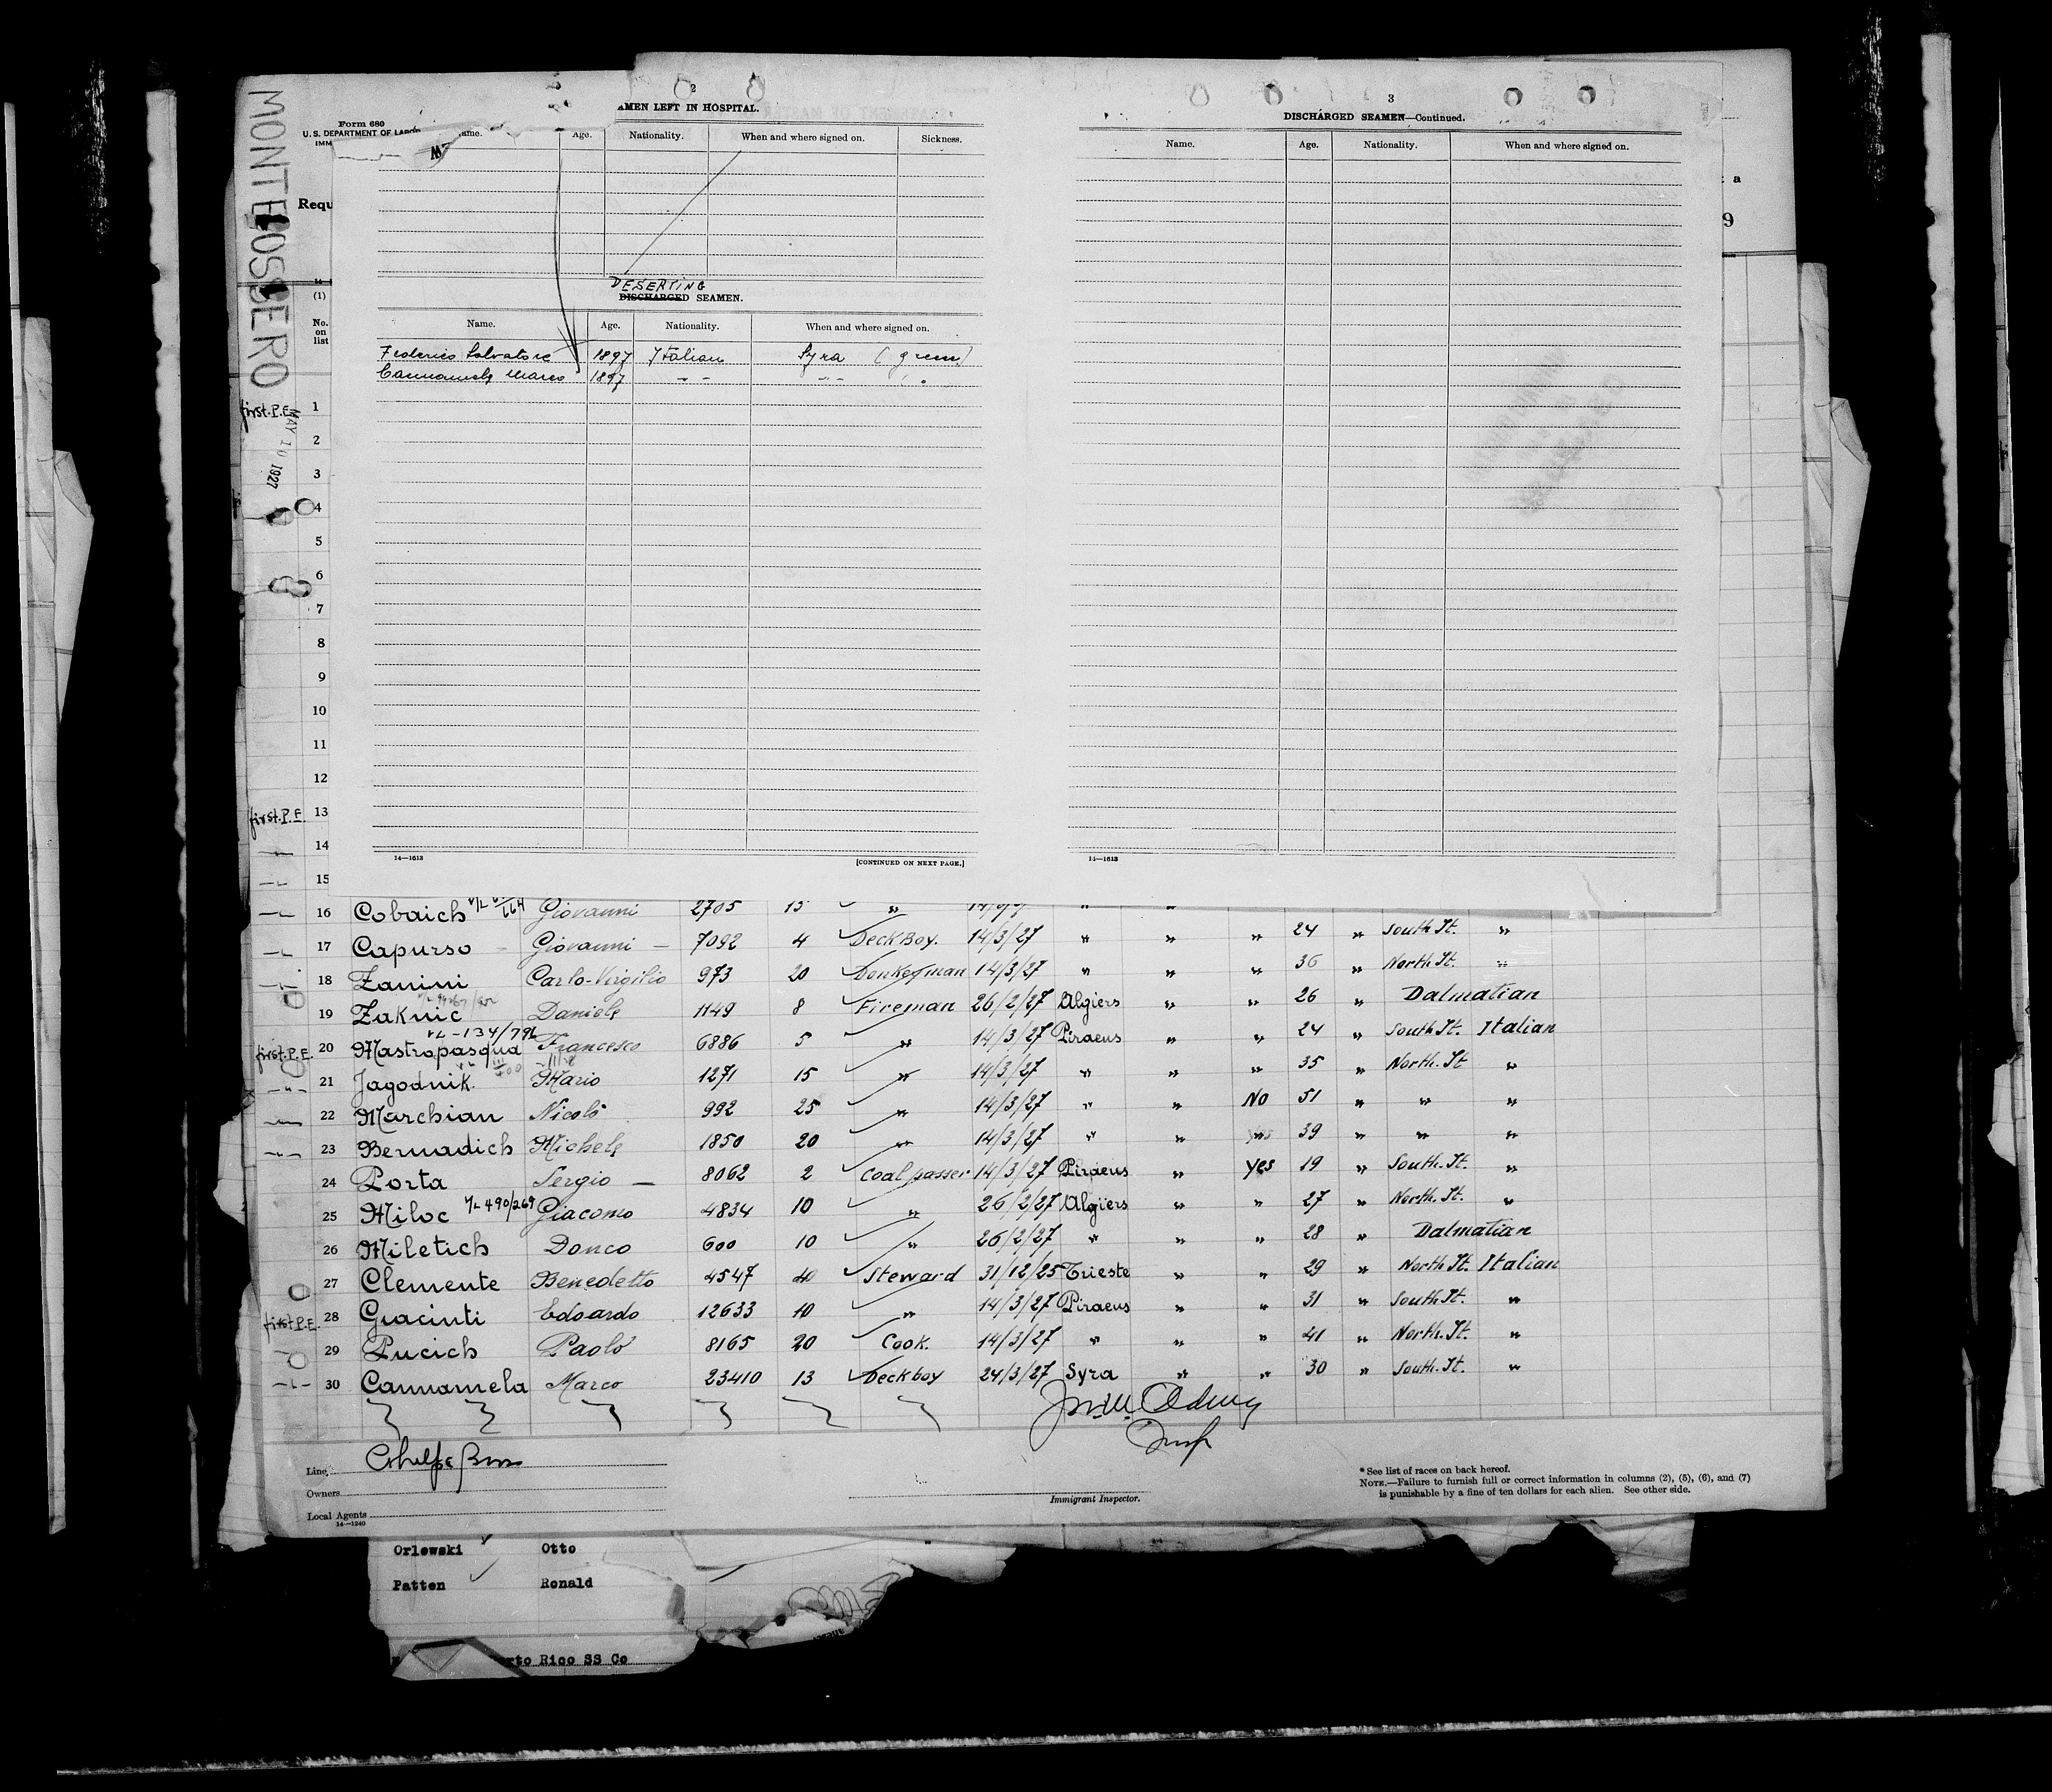 MONTE OSSERO
MAY 10 1927
Form 680
U.S. DEPARTMENT OF LABOR
IMM
Requ
2
AMEN LEFT IN HOSPITAL.
ame. Age. Nationality. When and where signed on. Sickness.
DESERTING
DISCHARGED SEAMEN.
Name. Age. Nationality. When and where signed on.
Federico Salvatore 1897 Italian Syra
Cannamela Marco 1897 " " " "
14—1613 [CONTINUED ON NEXT PAGE.]
3
DISCHARGED SEAMEN—Continued.
Name. Age. Nationality. When and where signed on.
14—1613
a
9
(1)
No. on list
first.P.E. 1
2
3
4
5
6
7
8
9
10
11
12
first.P.E. 13
14
15
16 Cobaich Giovanni 2705 15 "
17 Capurso Giovanni 7092 4 Deck Boy. 14/3/27 " " " 24 " South It. "
18 Zanini Carlo-Virgilio 973 20 Donkeyman 14/3/27 " " " 36 " North It. "
19 Zaknic Daniele 1149 8 Fireman 26/2/27 Algiers " " 26 " Dalmatian
first.P.E. 20 Mastropasqua Francesco 6886 5 " 14/3/27 Piraeus " " 24 " South It. Italian
21 Jagodnik. Mario 1271 15 " 14/3/27 " " " 35 " North. It "
22 Marchian Nicolò 992 25 " 14/3/27 " " No 51 " " "
23 Bernadich Michele 1850 20 " 14/3/27 " " yes 39 " " "
24 Porta Sergio 8062 2 Coal passer 14/3/27 Piraeus " yes 19 " South. It. "
25 Miloc V/L 490/269 Giacomo 4834 10 " 26/2/27 Algiers " " 27 " North. It. "
26 Miletich Donco 600 10 " 26/2/27 " " " 28 " Dalmatian
27 Clemente Benedetto 4547 40 Steward 31/12/25 Trieste " " 29 " North It. Italian
first P.E. 28 Giacinti Edoardo 12633 10 " 14/3/27 Piraeus " " 31 " South It. "
29 Pucich Paolo 8165 20 Cook. 14/3/27 " " " 41 " North. It. "
30 Cannamela Marco 23410 13 Deckboy 24/3/27 Syra " " 30 " South. It. "
Line
Owners
Local Agents
14—1240
Immigrant Inspector.
* See list of races on back hereof.
NOTE.—Failure to furnish full or correct information in columns (2), (5), (6), and (7)
is punishable by a fine of ten dollars for each alien. See other side.
Orlowski Otto
Patten Ronald
orto Rico SS Co